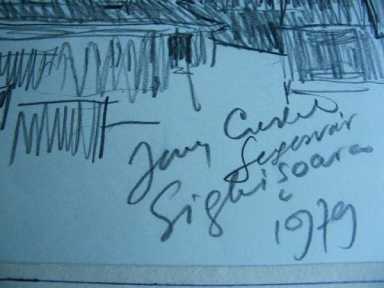 Jeny
Segesvár
Sighisoara
1979